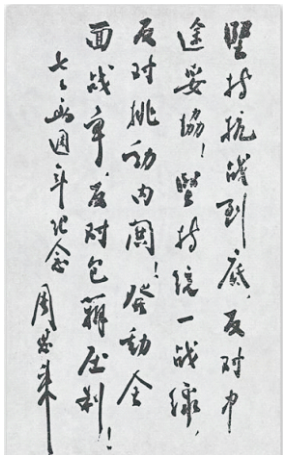 坚持抗战到底，反对中
途妥协！坚持统一战线，
反对挑动内阋！发动全
面战争，反对包办压制！
七七两周年纪念
周恩来